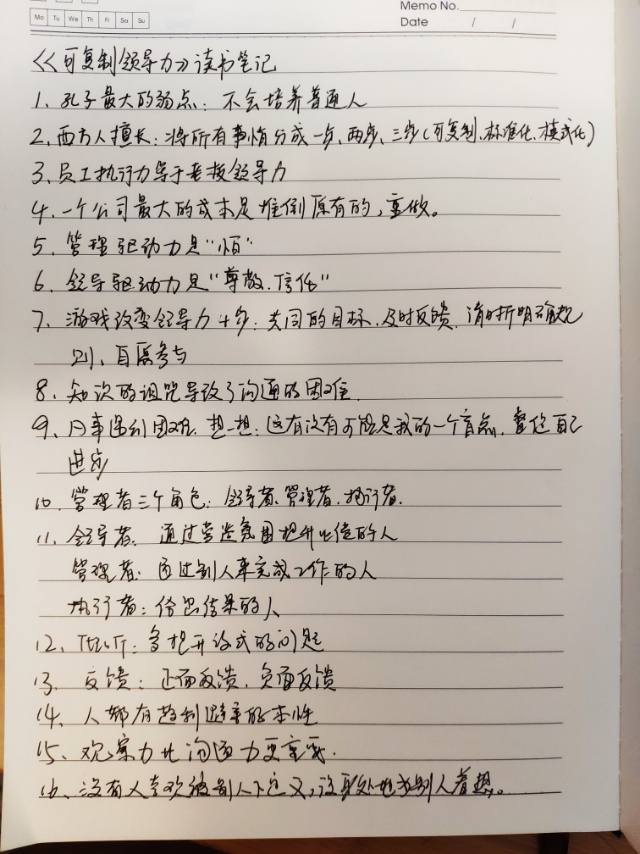 Mo Tu We Th Fr Sa Su
Memo No.
Date / /
《可复制领导力》读书笔记
1、孔子最大的弱点：不会培养普通人
2、西方人擅长：将所有事情分成一步、两步、三步(可复制、标准化、模式化)
3、员工执行力等于老板领导力
4、一个公司最大的成本是推倒原有的，重做。
5、管理驱动力是“怕”
6、领导驱动力是“尊敬、信任”
7、游戏改变领导力4步：共同的目标、及时反馈、清晰明确规
则、自愿参与
8、知识的诅咒导致了沟通的困难
9、凡事遇到困难、想一想：这有没有可能是我的一个盲点，督促自己
进步
10、管理者三个角色：领导者、管理者、执行者.
11、领导者：通过营造氛围把升的人
管理者：通过别人来完成工作的人
执行者：给出结果的人
12、倾听：多提开放式的问题
13、反馈：正面反馈、负面反馈
14、人都有趋利避害的本性
15、观察力比沟通力更重要.
16、没有人喜欢被别人下定义，设身处地为别人着想。